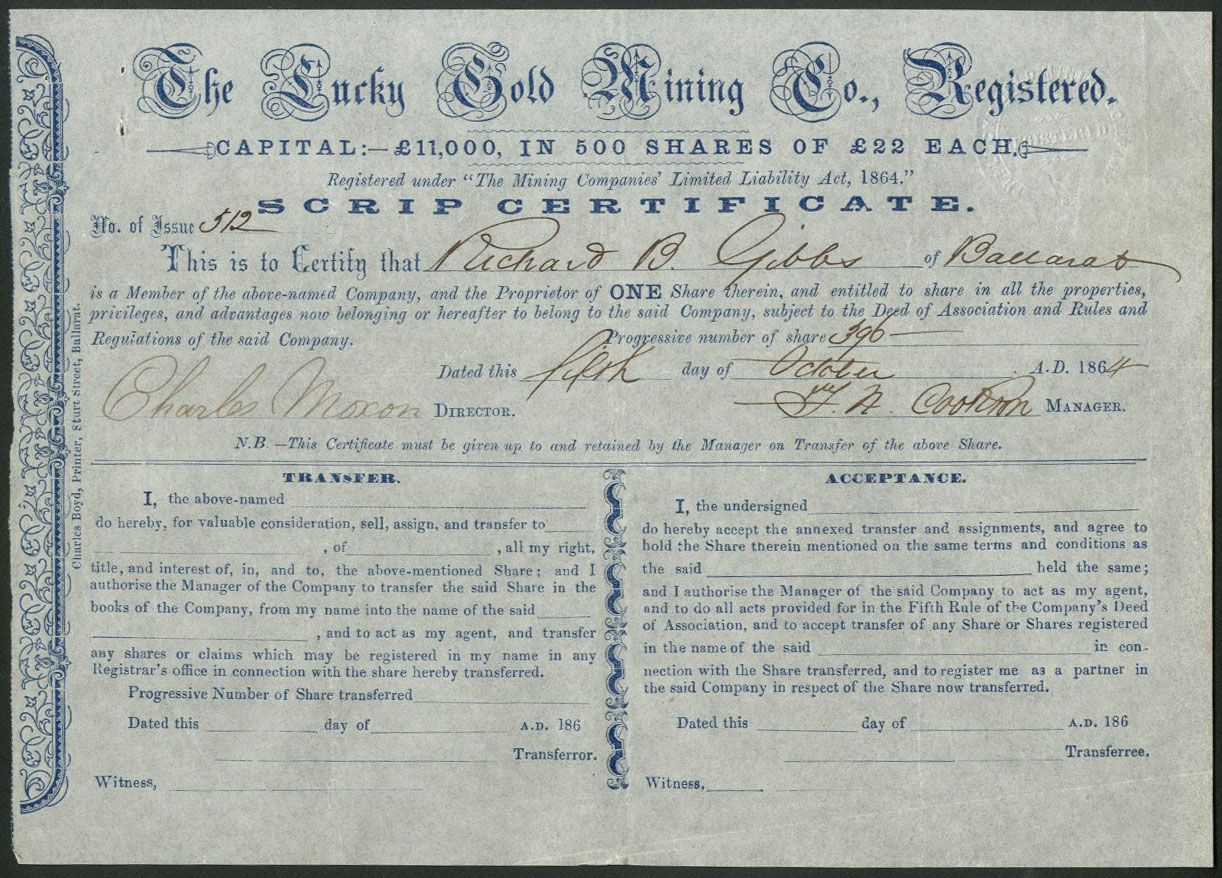 The Lucky Gold Mining Co., Registered.
CAPITAL:—£11,000, IN 500 SHARES OF £22 EACH.
Registered under "The Mining Companies' Limited Liability Act, 1864."
SCRIP CERTIFICATE.
No. of Issue 512
This is to Certify that Richard B. Gibbs of Ballarat
is a Member of the above-named Company, and the Proprietor of ONE Share therein, and entitled to share in all the properties,
privileges, and advantages now belonging or hereafter to belong to the said Company, subject to the Deed of Association and Rules and
Regulations of the said Company. Progressive number of share 396
Dated this fifth day of October A.D. 1864
Charles Moxon DIRECTOR. MANAGER.
N.B.—This Certificate must be given up to and retained by the Manager on Transfer of the above Share.
Charles Boyd, Printer, Sturt Street, Ballarat.
TRANSFER.
I, the above-named
do hereby, for valuable consideration, sell, assign, and transfer to
, of , all my right,
title, and interest of, in, and to, the above-mentioned Share; and I
authorise the Manager of the Company to transfer the said Share in the
books of the Company, from my name into the name of the said
, and to act as my agent, and transfer
any shares or claims which may be registered in my name in any
Registrar's office in connection with the share hereby transferred.
Progressive Number of Share transferred
Dated this day of A.D. 186
Transferror.
Witness,
ACCEPTANCE.
I, the undersigned
do hereby accept the annexed transfer and assignments, and agree to
hold the Share therein mentioned on the same terms and conditions as
the said held the same;
and I authorise the Manager of the said Company to act as my agent,
and to do all acts provided for in the Fifth Rule of the Company's Deed
of Association, and to accept transfer of any Share or Shares registered
in the name of the said in con-
nection with the Share transferred, and to register me as a partner in
the said Company in respect of the Share now transferred.
Dated this day of A.D. 186
Transferree.
Witness,